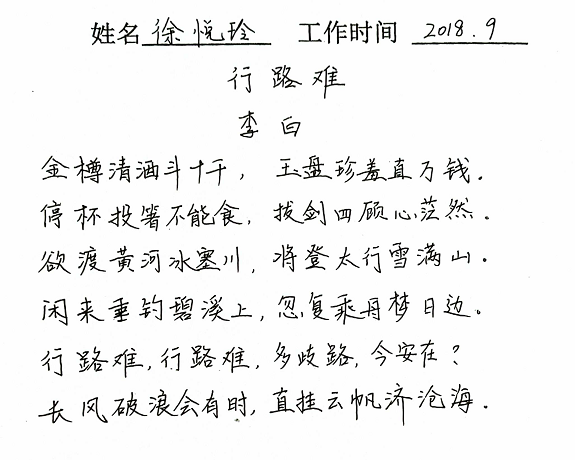 姓名 徐悦玲 工作时间 2018.9
行路难
李白
金樽清酒斗十千，玉盘珍羞直万钱.
停杯投箸不能食，拔剑四顾心茫然.
欲渡黄河冰塞川，将登太行雪满山.
闲来垂钓碧溪上，忽复乘舟梦日边.
行路难，行路难，多歧路，今安在？
长风破浪会有时，直挂云帆济沧海.